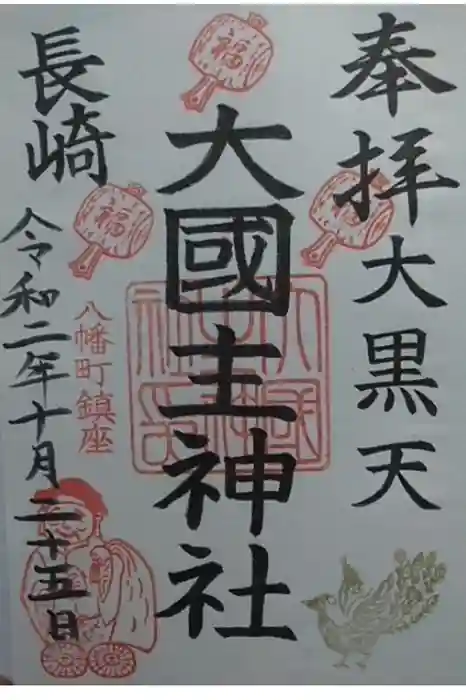 奉拝 大黒天
大國主神社
八幡町鎮座
長崎
令和二年十月二十五日
福
福
福